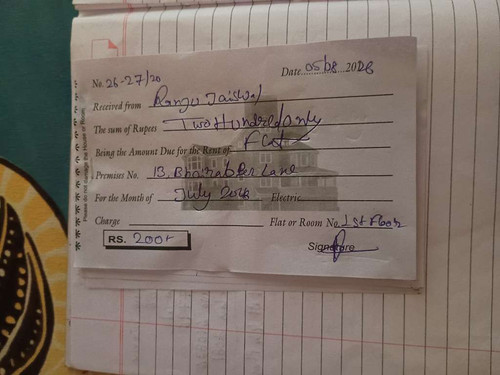 No. 26-27/20
Date 05/08 2026
Received from Ranju Jaiswal
The sum of Rupees Two Hundred only
Being the Amount Due for the Rent of Flat
Premises No. 13, Bhairab Per Lane
For the Month of July 2026 Electric
Charge Flat or Room No. 1st Floor
RS. 200/-
Signature